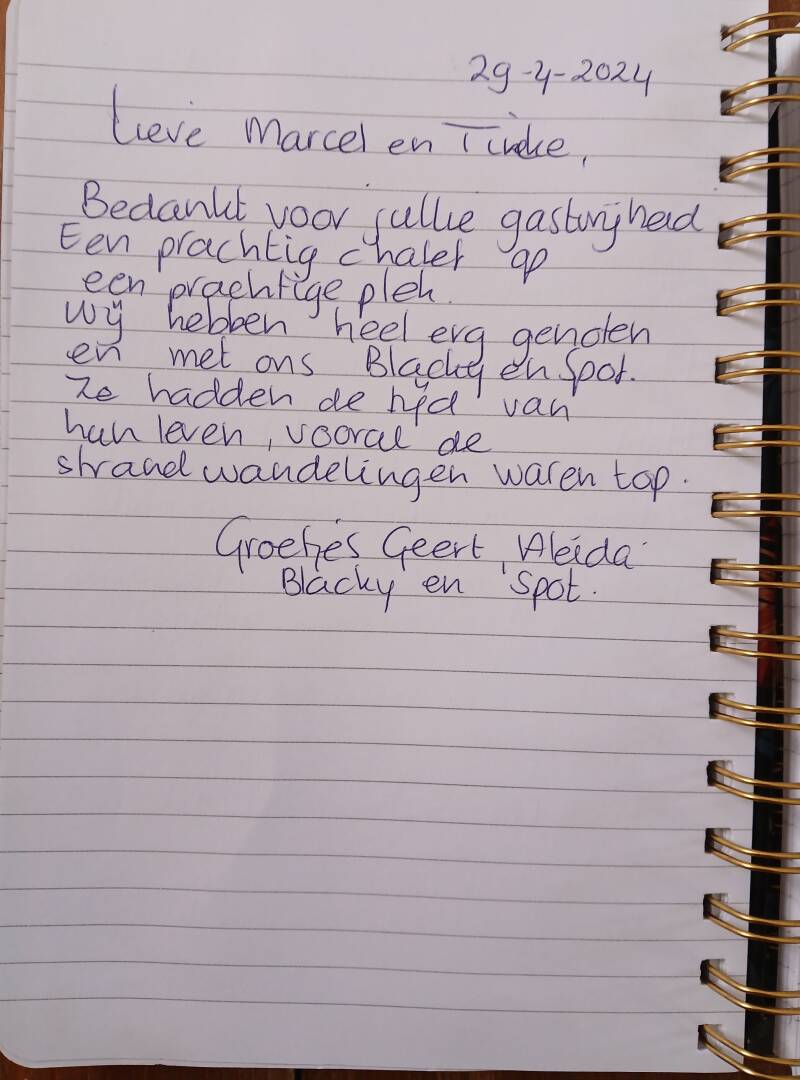 29-4-2024
Lieve Marcel en Tineke,
Bedankt voor jullie gastvrijheid
Een prachtig chalet op
een prachtige plek.
Wij hebben heel erg genoten
en met ons Blacky en Spot.
Ze hadden de tijd van
hun leven, vooral de
strandwandelingen waren top.
Groetjes Geert, Aleida
Blacky en Spot.